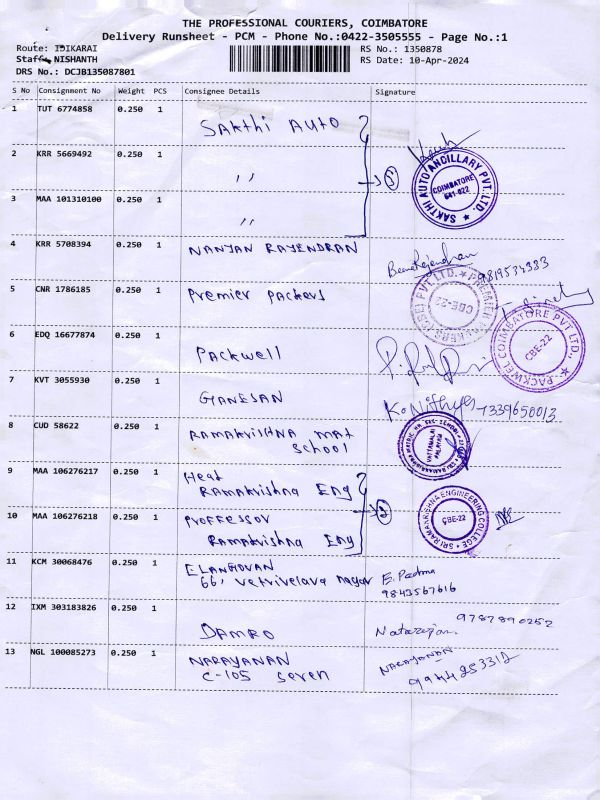 THE PROFESSIONAL COURIERS, COIMBATORE
Delivery Runsheet - PCM - Phone No.:0422-3505555 - Page No.:1
Route: IDIKARAI
RS No.: 1350878
Staff: NISHANTH
RS Date: 10-Apr-2024
DRS No.: DCJB135087801
S No Consignment No Weight PCS Consignee Details Signature
1 TUT 6774858 0.250 1 SAKthi AUtO
2 KRR 5669492 0.250 1 ,,
SAKTHI AUTO ANCILLARY PVT. LTD.
COIMBATORE
641-022
3 MAA 101310100 0.250 1 ,,
4 KRR 5708394 0.250 1 NANJAN RAJENDRAN
9819534383
5 CNR 1786185 0.250 1 Premier Packers
CBE-22
6 EDQ 16677874 0.250 1 Packwell
PACKWEL COIMBATORE PVT LTD.
CBE-22
7 KVT 3055930 0.250 1 GANESAN
7339650013
8 CUD 58622 0.250 1 RAMAKVISHNA mat
School
9 MAA 106276217 0.250 1 Heat
RAMAKrishna Eng
SRI RAMAKRISHNA ENGINEERING COLLEGE
CBE-22
10 MAA 106276218 0.250 1 Proffessor
Ramakrishna Eng
11 KCM 30068476 0.250 1 ELANGOVAN
66, Vetrivelava nagar
E. Padma
9843567616
12 IXM 303183826 0.250 1 DAMRO
Natarajan
9787890252
13 NGL 100085273 0.250 1 NARAYANAN
C-105 Seven
NARAYANAN
9944253312